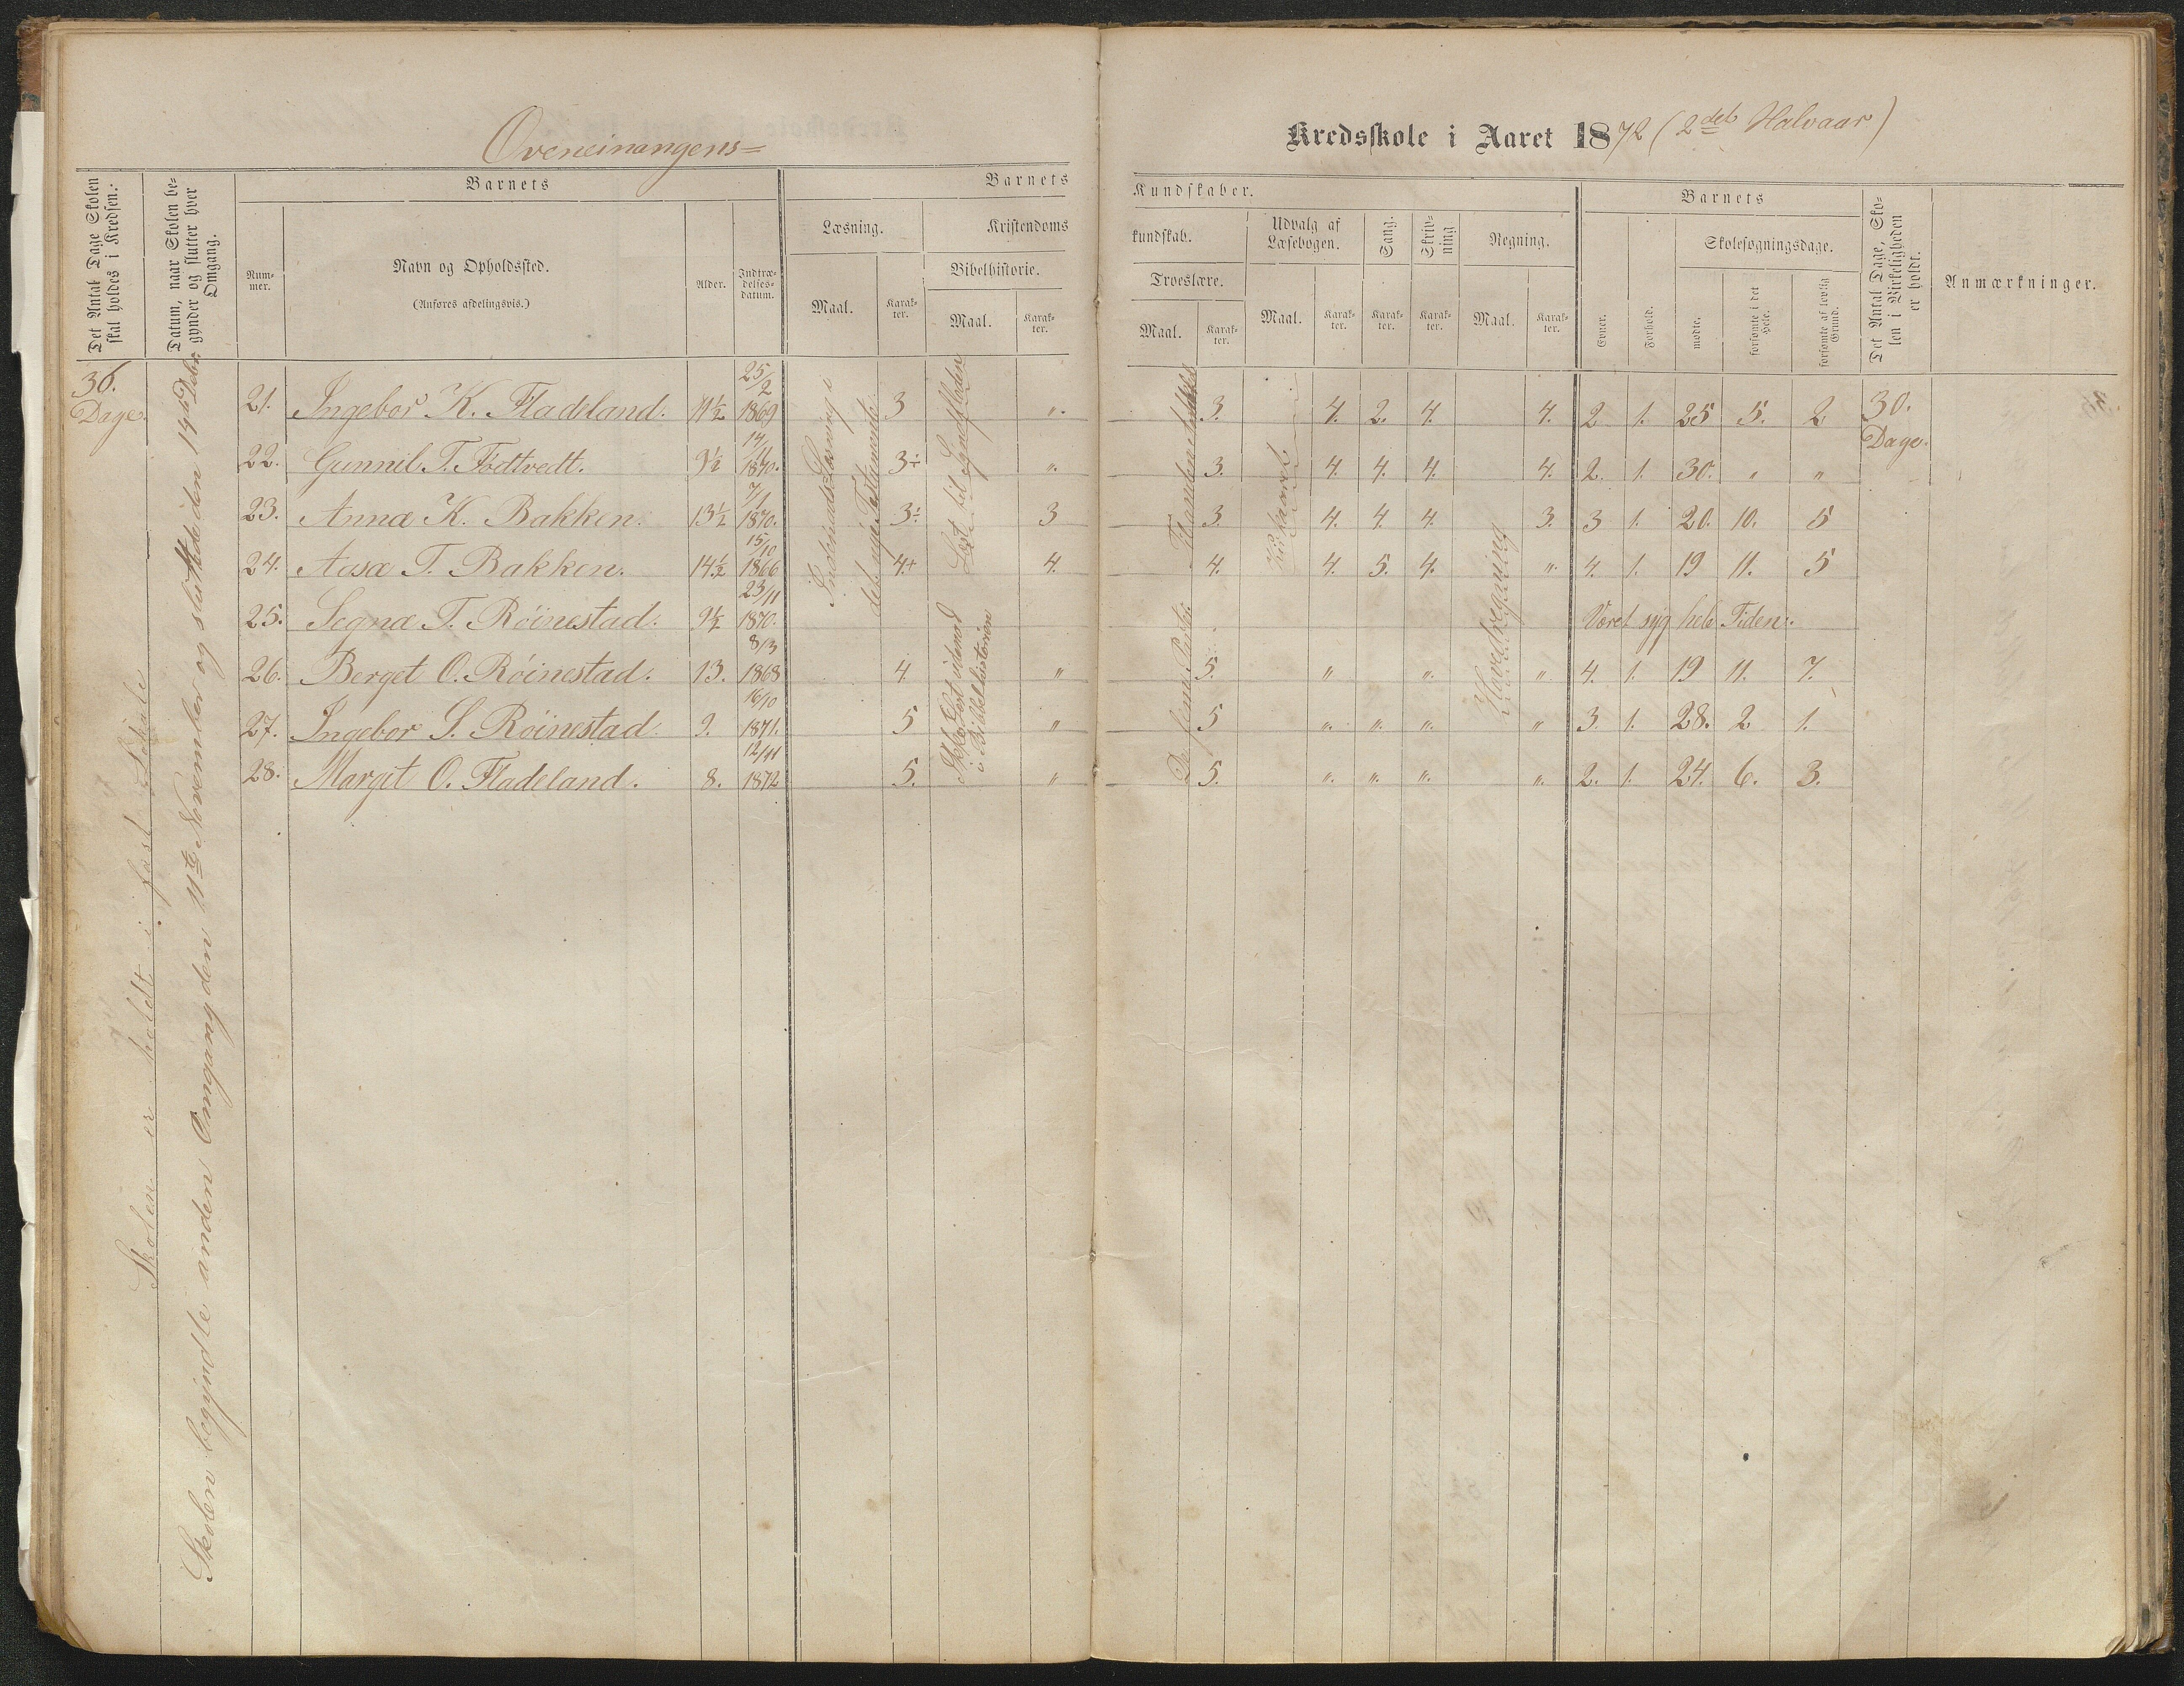 Øveneinangens=
Kredsskole i Aaret 1872 (2det Halvaar)
Det Antal Dage Skolen skal holdes i Kredsen.
Datum, naar Skolen begynder og slutter hver Omgang.
Barnets
Nummer.
Navn og Opholdssted.
(Anføres afdelingsvis.)
Alder.
Indtrædelsesdatum.
Barnets
Kundskaber.
Læsning.
Maal.
Karakter.
Kristendoms
kundskab.
Bibelhistorie.
Maal.
Karakter.
Troeslære.
Maal.
Karakter.
Udvalg af Læsebogen.
Maal.
Karakter.
Sang.
Karakter.
Skrivning
Karakter.
Regning.
Maal.
Karakter.
Barnets
Evner.
Forhold.
Skolesøgningsdage.
mødte.
forsømte i det Hele.
forsømte af lovlig Grund.
Det Antal Dage, Skolen i Virkeligheden er holdt.
Anmærkninger.
36. Dage.
Skolen er holdt i fast Lokale
Skolen begyndte anden Omgang den 11te November og sluttede den 14de Debr.
Indenads Læsning i det nye Testamente
Læst til Syndfloden
Ikke læst udenad i Bibelhistorien
De femte Parter
Hovedregning
21. Ingebor K. Fladeland. 11½ 25/2 1869 3 ". 3. 4. 2. 4. 4. 2 1. 25 5. 2 30. Dage.
22. Gunnil T. Födtvedt. 9½ 14/11 1870. 3÷ ". 3. 4. 4. 4. 4. 2. 1. 30. " "
23. Anna K. Bakken. 13½ 7/1 1870. 3÷ 3 3. 4. 4. 4. 3. 3 1. 20. 10. 5
24. Aasa T. Bakken. 14½ 15/10 1866 4+ 4. 4. 4. 5. 4. ". 4. 1. 19 11. 5
25. Segna T. Röinestad. 9½ 23/11 1870. Været syg hele Tiden.
26. Berget O. Röinestad. 13. 8/3 1868 4. " 5. " ". ". 4. 1. 19 11. 7.
27. Ingebor S. Röinestad. 9. 16/10 1871. 5 " 5 ". ". ". " 3. 1. 28. 2 1.
28. Margit O. Fladeland. 8. 12/11 1872 5. " 5. ". ". ". ". 2. 1. 24. 6. 3.